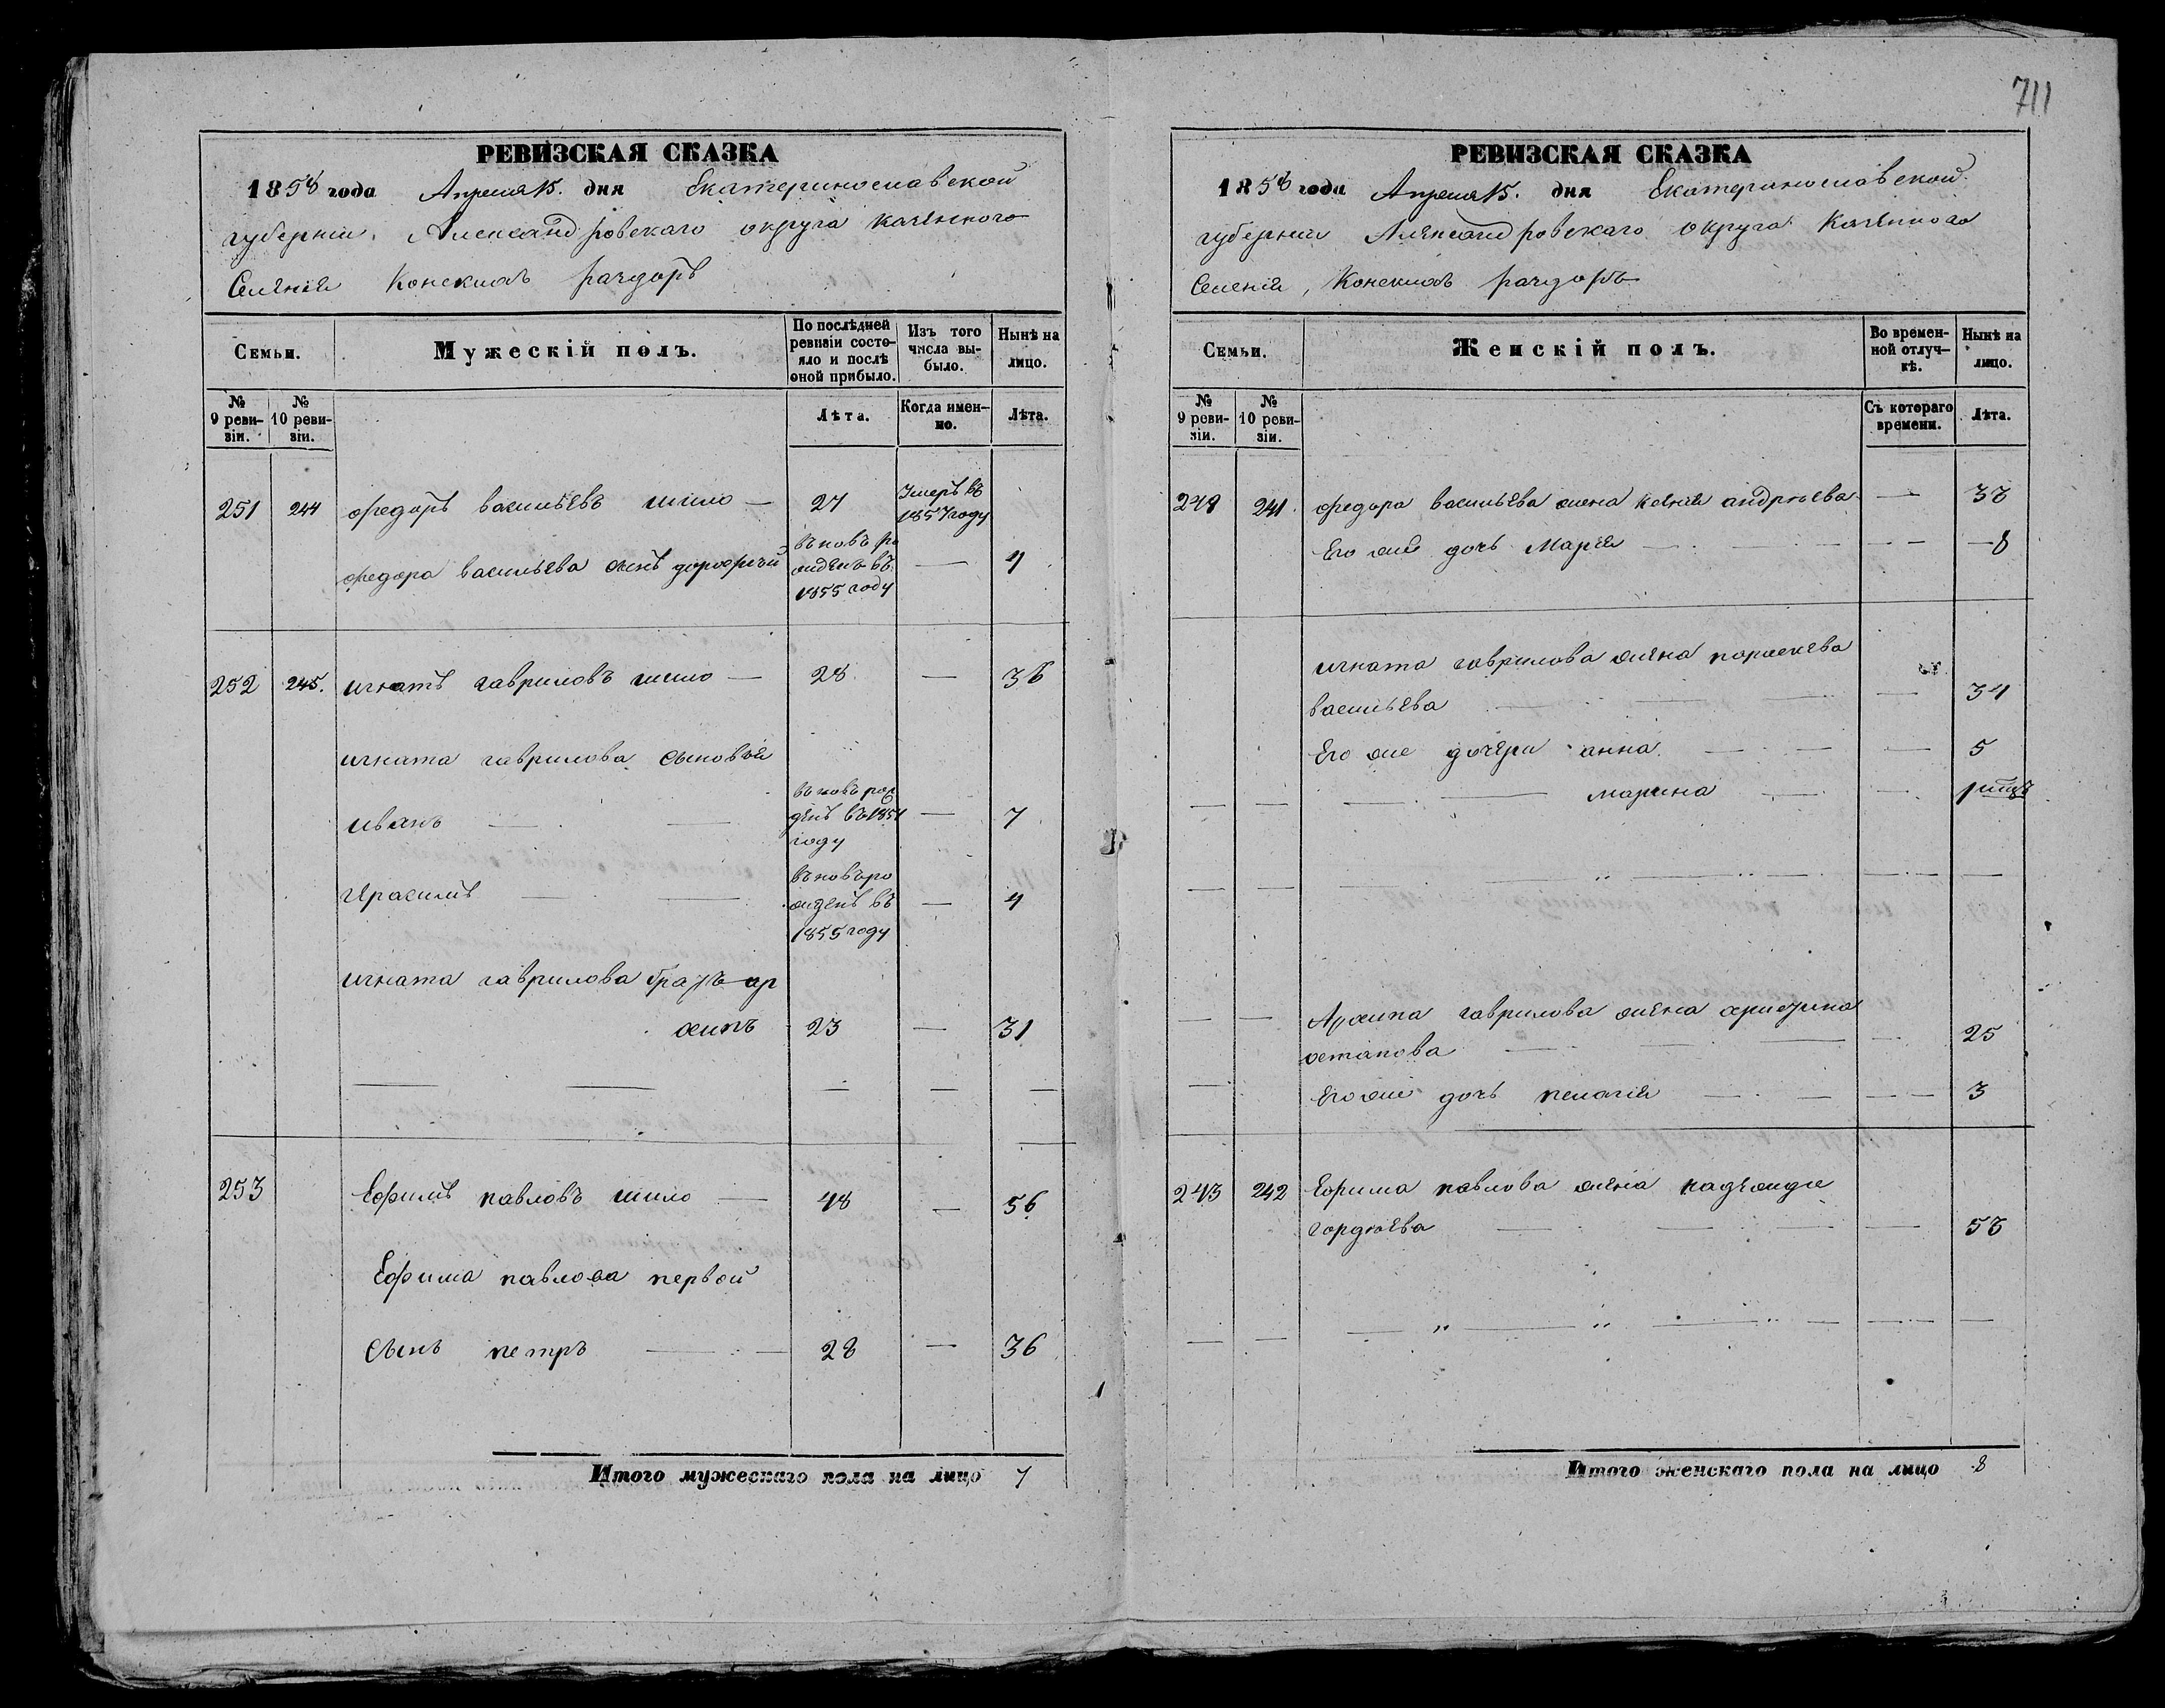 711
РЕВИЗСКАЯ СКАЗКА
1858 года Апреля 15. дня Екатеринославской
губерніи, Александровскаго округа казенного
Селенія Конскихъ раздоръ
Семьи.
Мужескій полъ.
По послѣдней ревизіи состояло и послѣ оной прибыло.
Изъ того числа выбыло.
Нынѣ на лицо.
№ 9 ревизіи.
№ 10 ревизіи.
Лѣта.
Когда именно.
Лѣта.
251 244 федоръ васильевъ шило — 27 Умеръ въ 1857 году
федора васильева сынъ дорофѣй въновь рожденъ въ 1855 году — 4
252 245. игнатъ гавриловъ шило — 28 — 36
игната гаврилова сыновья
иванъ — — въновь рожденъ въ 1851 году — 7
Герасимъ — — въновь рожденъ въ 1855 году — 4
игната гаврилова братъ ар
хипъ 23 — 31
— — — — —
253 Ефимъ павловъ шило — 48 — 56
Ефима павлова первой
сынъ петръ — 28 — 36
Итого мужескаго пола на лицо 7
РЕВИЗСКАЯ СКАЗКА
1858 года Апреля 15. дня Екатеринославской
губерніи Александровскаго округа Казенного
Селенія, Конскихъ раздоръ
Семьи.
Женскій полъ.
Во временной отлучкѣ.
Нынѣ на лицо.
№ 9 ревизіи.
№ 10 ревизіи.
Съ котораго времени.
Лѣта.
241. федора васильева жена ксенія андреева — 38
Его же дочь Марія — — 8
игната гаврилова жена пораскева
васильева — — 34
Его же дочери анна — — 5
марина —
Архипа гаврилова жена христина
остапова — — 25
Его же дочь пелагія — — 3
243 242 Ефима павлова жена надежда
гордюева — — 58
Итого женскаго пола на лицо 8